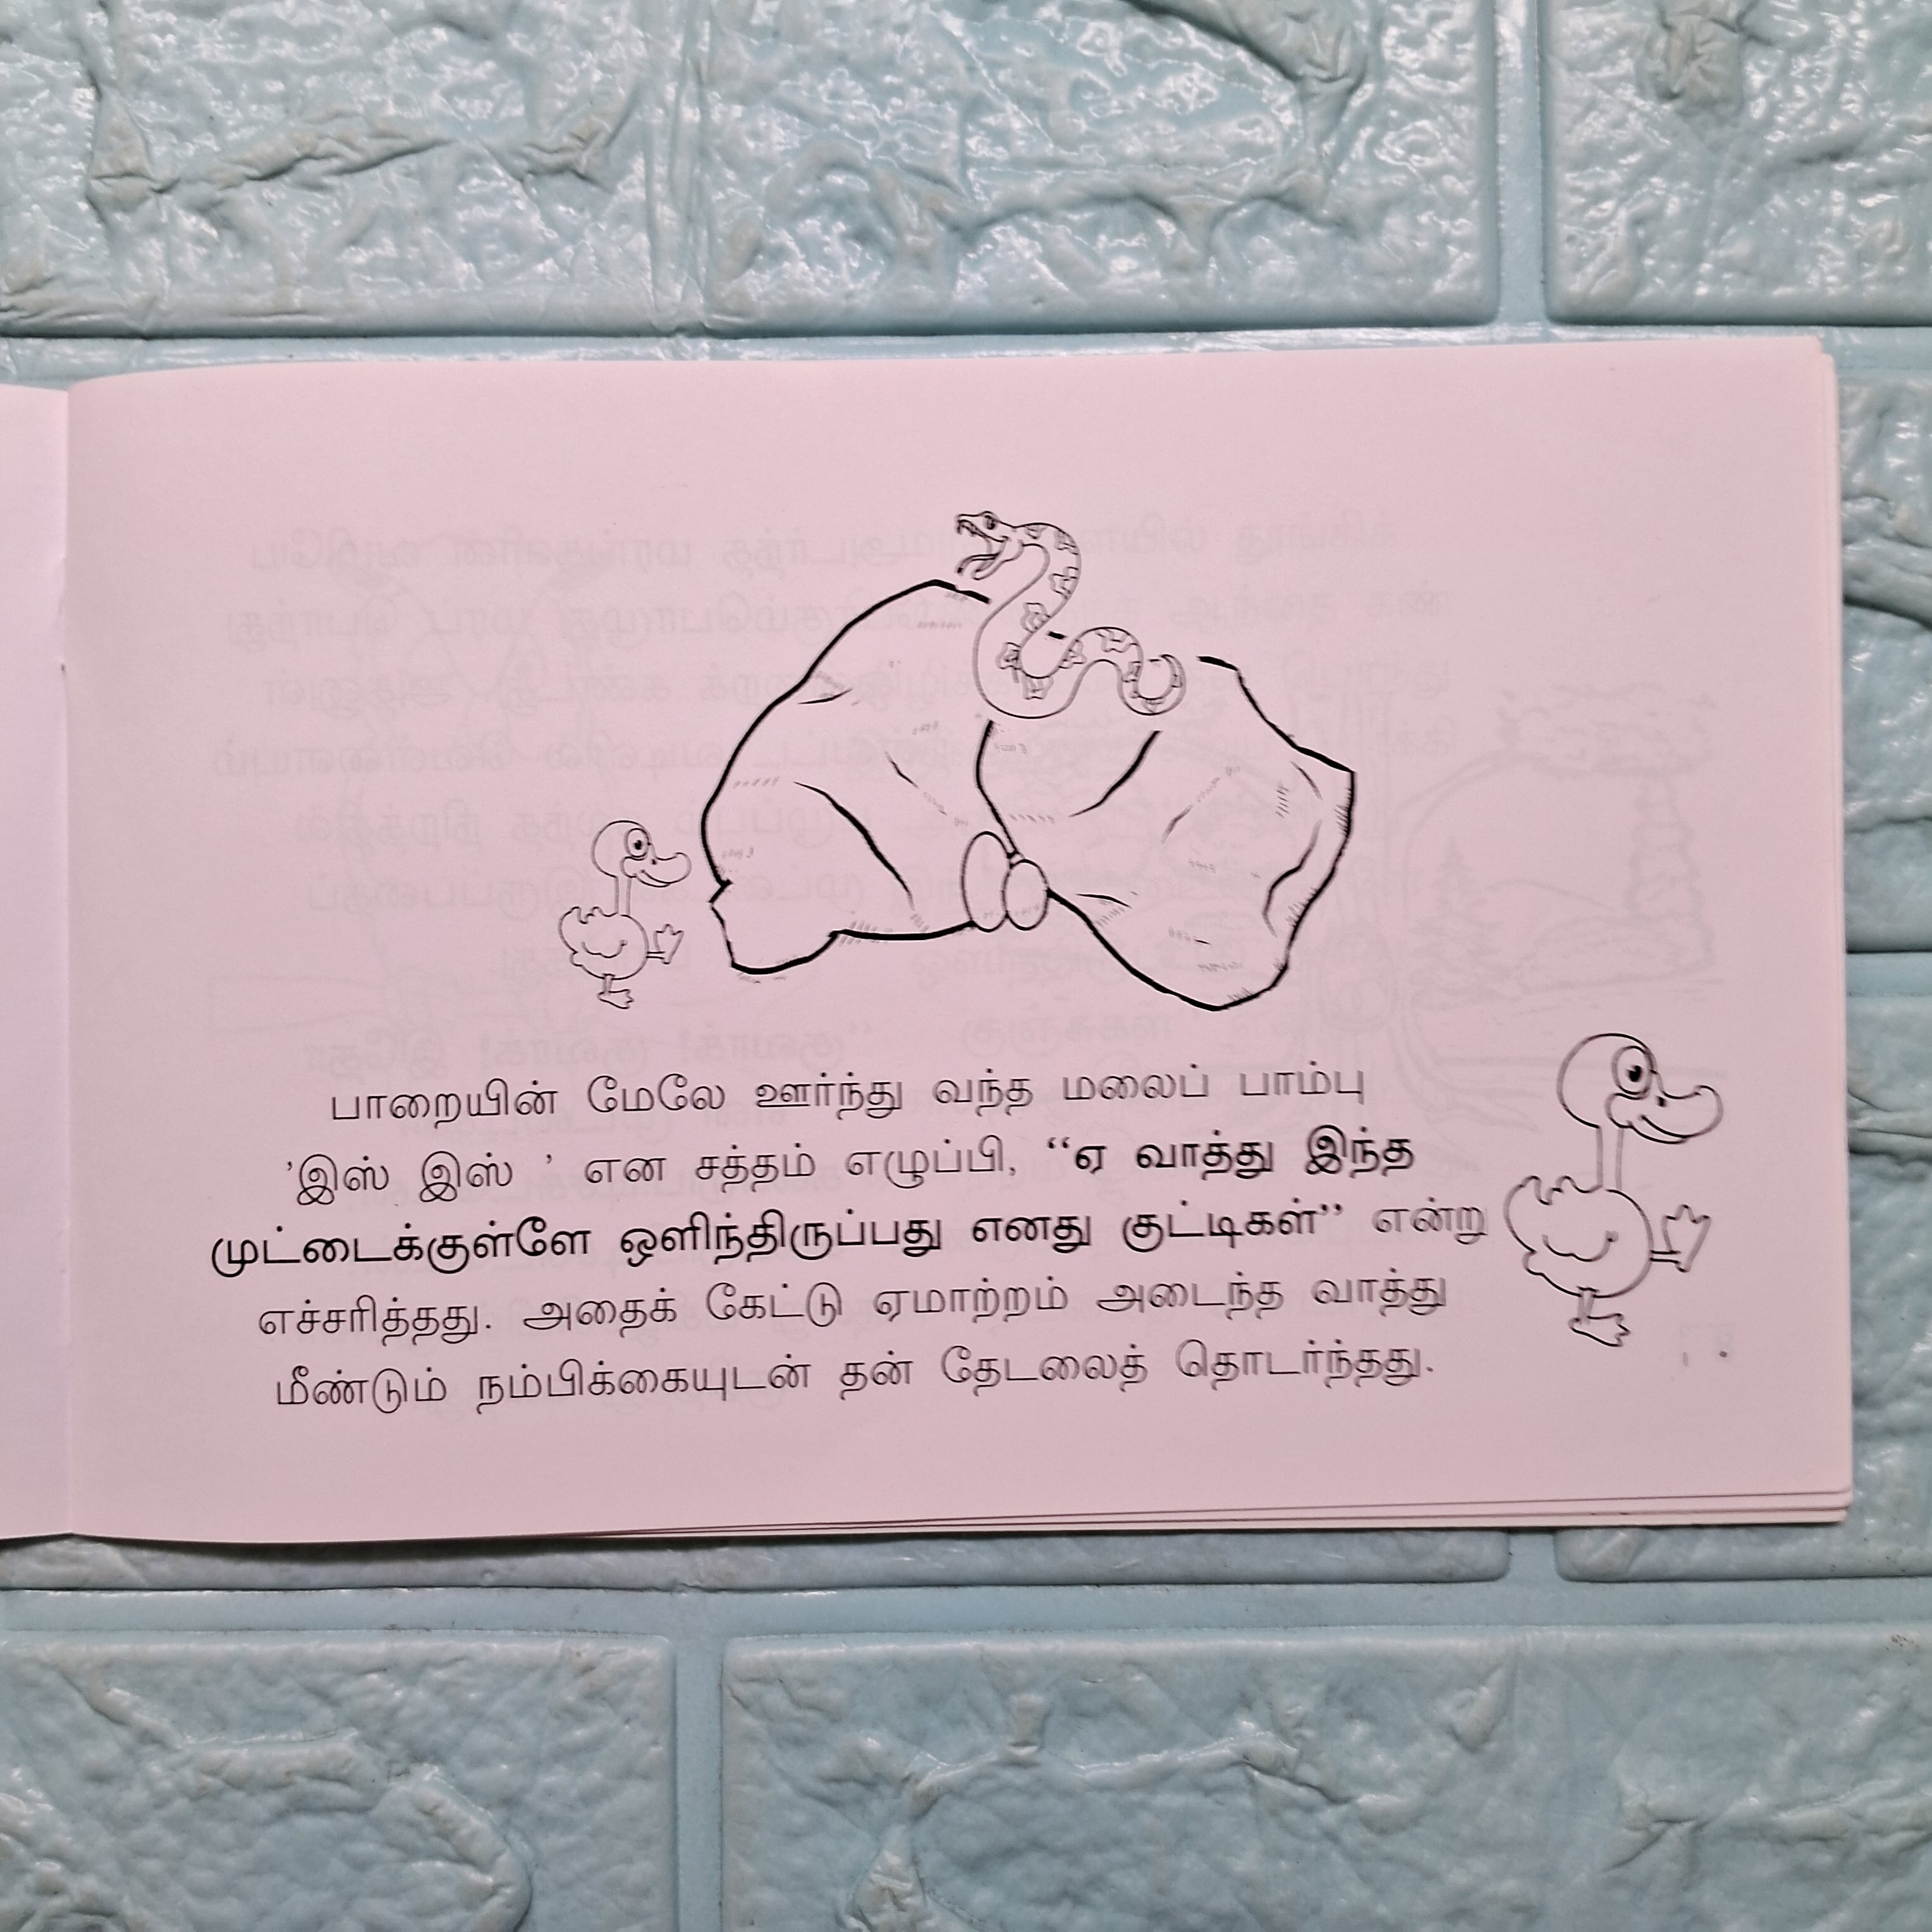 பாறையின் மேலே ஊர்ந்து வந்த மலைப் பாம்பு
'இஸ் இஸ் ' என சத்தம் எழுப்பி, “ஏ வாத்து இந்த
முட்டைக்குள்ளே ஒளிந்திருப்பது எனது குட்டிகள்” என்று
எச்சரித்தது. அதைக் கேட்டு ஏமாற்றம் அடைந்த வாத்து
மீண்டும் நம்பிக்கையுடன் தன் தேடலைத் தொடர்ந்தது.